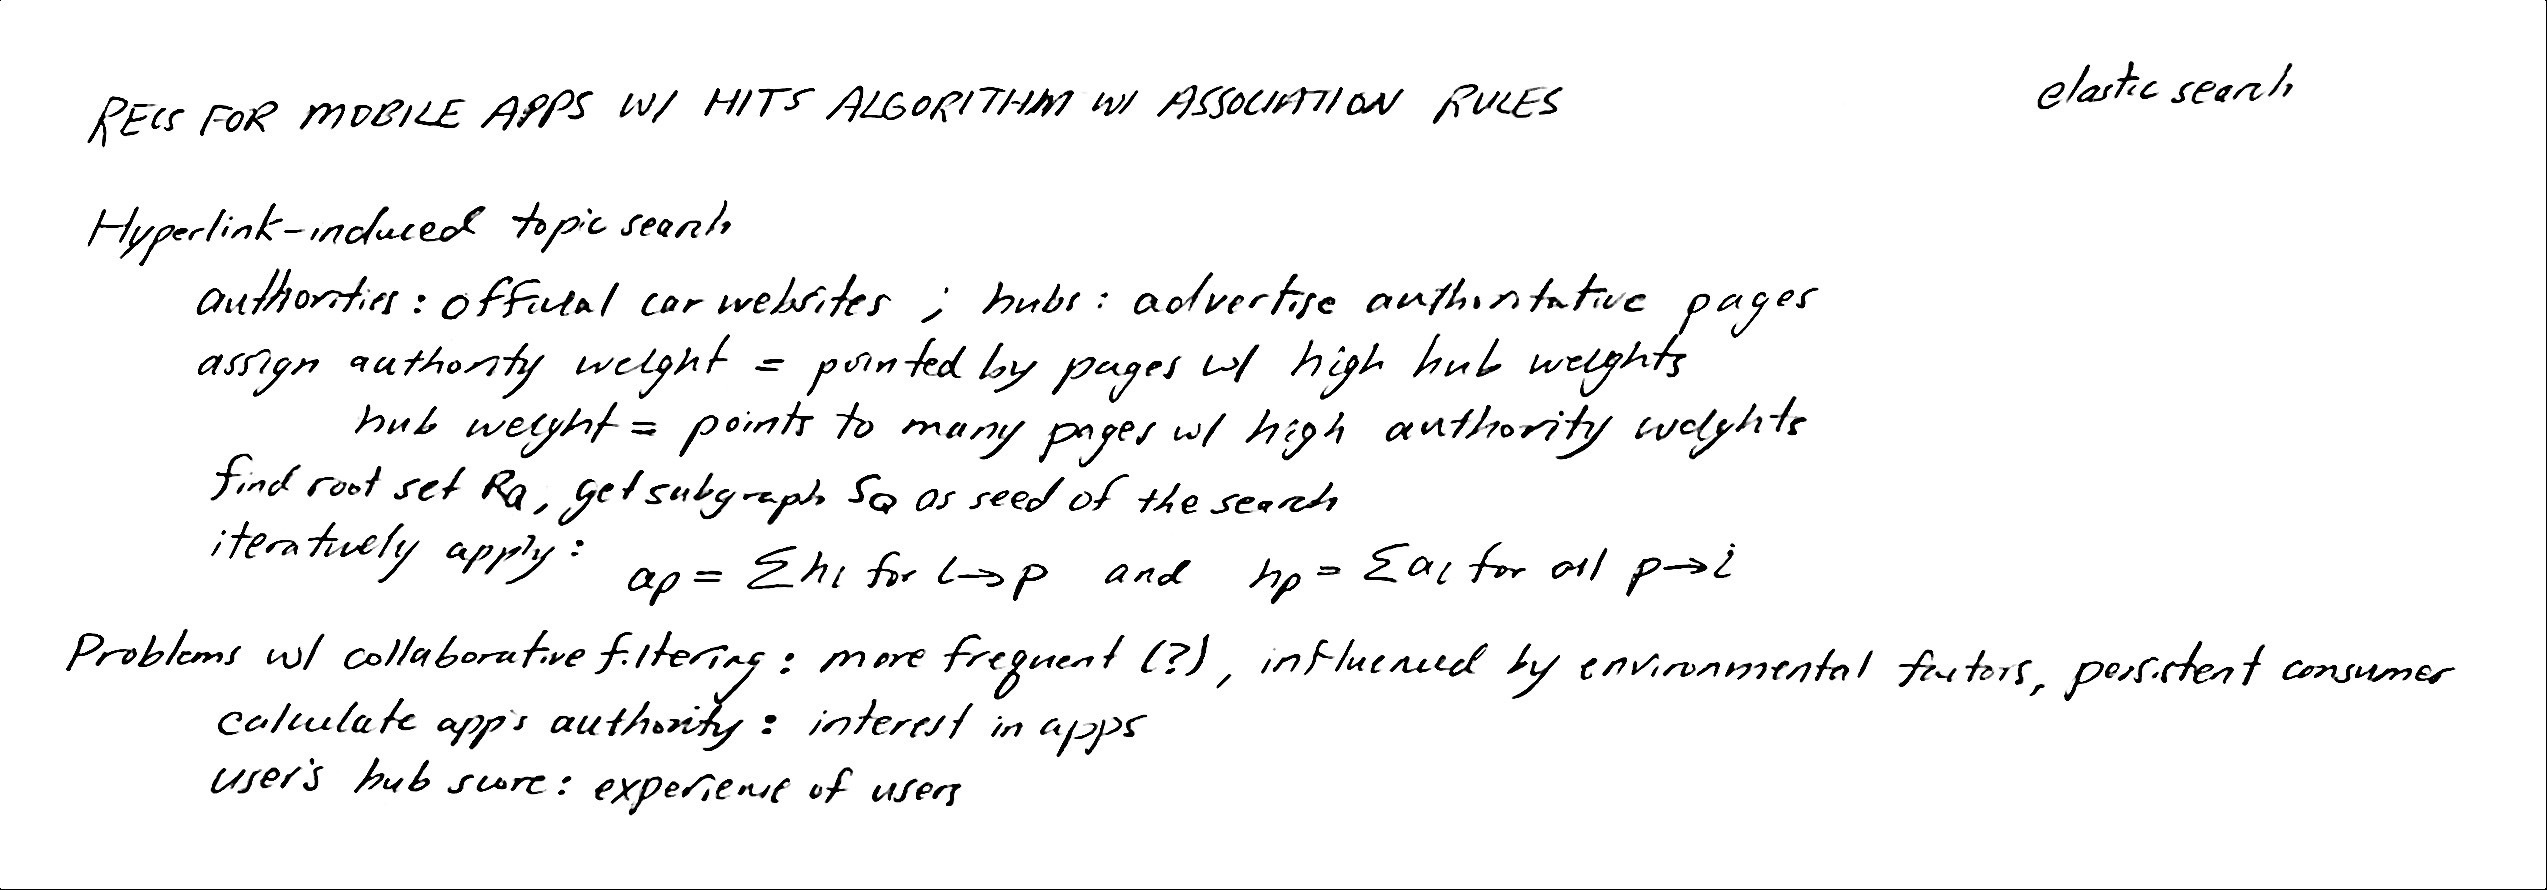 RECS FOR MOBILE APPS W/ HITS ALGORITHM W/ ASSOCIATION RULES
elastic search
Hyperlink-induced topic search
authorities: official car websites ; hubs: advertise authoritative pages
assign authority weight = pointed by pages w/ high hub weights
hub weight = points to many pages w/ high authority weights
find root set R_Q, get subgraph S_Q as seed of the search
iteratively apply:
a_p = Σh_i for i→p and h_p = Σa_i for all p→i
Problems w/ collaborative filtering: more frequent (?), influenced by environmental factors, persistent consumer
calculate app's authority: interest in apps
user's hub score: experience of users